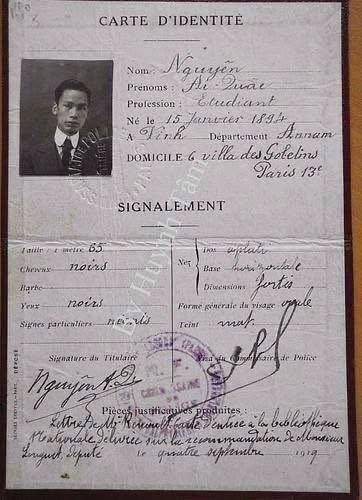 CARTE D'IDENTITÉ
Nom: Nguyễn
Prénoms: Ái-Quăc
Profession: Etudiant
Né le 15 Janvier 1894
A Vinh Département Annam
DOMICILE 6 villa des Gobelins
Paris 13e
SIGNALEMENT
Taille: 1 mètre 65
Cheveux noirs
Barbe
Yeux noirs
Signes particuliers
Nez
Dos aplati
Base horizontale
Dimensions fortes
Forme générale du visage ovale
Teint mat
Signature du Titulaire
Visa du Commissaire de Police
Nguyễn A.Q.
Pièces justificatives produites:
Lettre de Mr carte d'entrée à la bibliothèque
Nationale délivrée sur la recommandation de Monsieur
Longuet, député le quatre septembre 1919
by Huỳnh Tâm